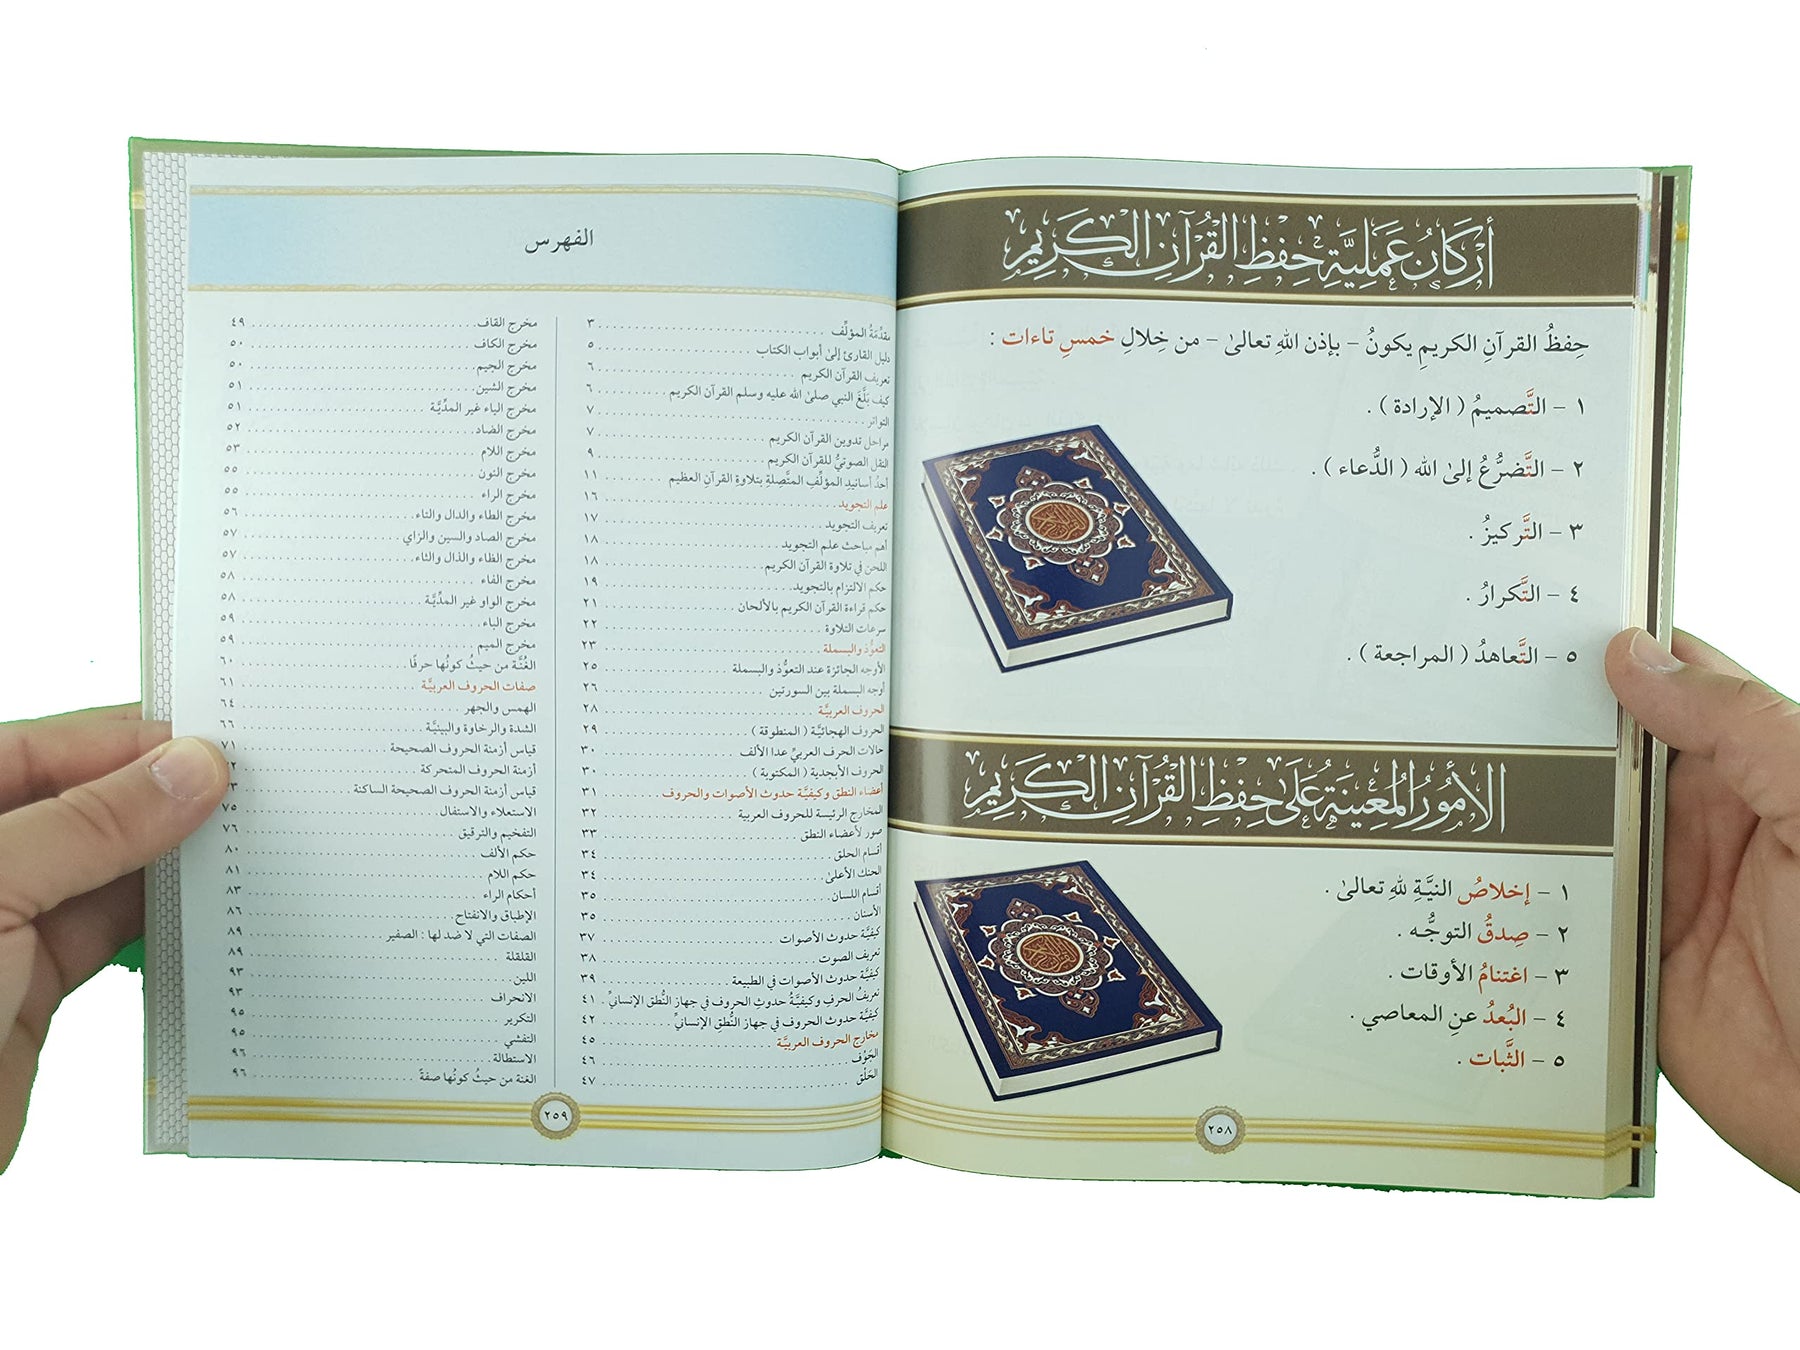 أركان عملية حفظ القرآن الكريم
حِفظُ القرآنِ الكريمِ يكونُ - بإذن اللهِ تعالىٰ - من خِلالِ خمسِ تاءات :
١ - التَّصميمُ ( الإرادة ) .
٢ - التَّضرُّعُ إلىٰ الله ( الدُّعاء ) .
٣ - التَّركيزُ .
٤ - التَّكرارُ .
٥ - التَّعاهدُ ( المراجعة ) .
الأمور المعينة على حفظ القرآن الكريم
١ - إخلاصُ النيَّةِ للهِ تعالىٰ .
٢ - صِدقُ التوجُّه .
٣ - اغتنامُ الأوقات .
٤ - البُعدُ عنِ المعاصي .
٥ - الثَّبات .
٢٥٨
الفهرس
مقدِّمَةُ المؤلِّف ٣
دليل القارئ إلىٰ أبواب الكتاب ٥
تعريف القرآن الكريم ٦
كيف بَلَّغَ النبي صلىٰ الله عليه وسلم القرآن الكريم ٦
التواتر ٧
مراحل تدوين القرآن الكريم ٧
النقل الصوتيُّ للقرآن الكريم ٩
أحدُ أسانيدِ المؤلِّفِ المتَّصِلةِ بتلاوةِ القرآنِ العظيم ١١
علم التجويد ١٦
تعريف التجويد ١٧
أهم مباحث علم التجويد ١٨
اللحن في تلاوة القرآن الكريم ١٨
حكم الالتزام بالتجويد ١٩
حكم قراءة القرآن الكريم بالألحان ٢١
سرعات التلاوة ٢٢
التعوُّذ والبسملة ٢٣
الأوجه الجائزة عند التعوُّذ والبسملة ٢٥
أوجه البسملة بين السورتين ٢٦
الحروف العربيَّة ٢٨
الحروف الهجائيَّة ( المنطوقة ) ٢٩
حالات الحرف العربيِّ عدا الألف ٣٠
الحروف الأبجدية ( المكتوبة ) ٣٠
أعضاء النطق وكيفيَّة حدوث الأصوات والحروف ٣١
المخارج الرئيسة للحروف العربية ٣٢
صور لأعضاء النطق ٣٣
أقسام الحلق ٣٤
الحنك الأعلىٰ ٣٤
أقسام اللسان ٣٥
الأسنان ٣٥
كيفيَّة حدوث الأصوات ٣٧
تعريف الصوت ٣٨
كيفيَّة حدوث الأصوات في الطبيعة ٣٩
تعريفُ الحرفِ وكيفيَّةُ حدوثِ الحروف في جهازِ النُّطق الإنسانيِّ ٤١
كيفيَّة حدوث الحروف في جهاز النُّطق الإنسانيِّ ٤٢
مخارج الحروف العربيَّة ٤٥
الجَوْف ٤٦
الحَلْق ٤٧
مخرج القاف ٤٩
مخرج الكاف ٥٠
مخرج الجيم ٥٠
مخرج الشين ٥١
مخرج الياء غير المدِّيَّة ٥١
مخرج الضاد ٥٢
مخرج اللام ٥٣
مخرج النون ٥٥
مخرج الراء ٥٥
مخرج الطاء والدال والتاء ٥٦
مخرج الصاد والسين والزاي ٥٧
مخرج الظاء والذال والثاء ٥٧
مخرج الفاء ٥٨
مخرج الواو غير المدِّيَّة ٥٨
مخرج الباء ٥٩
مخرج الميم ٥٩
الغُنَّة من حيثُ كونُها حرفًا ٦٠
صفات الحروف العربيَّة ٦١
الهمس والجهر ٦٤
الشدة والرخاوة والبينيَّة ٦٦
قياس أزمنة الحروف الصحيحة ٧١
أزمنة الحروف المتحركة
قياس أزمنة الحروف الصحيحة الساكنة
الاستعلاء والاستفال ٧٥
التفخيم والترقيق ٧٦
حكم الألف ٨٠
حكم اللام ٨١
أحكام الراء ٨٣
الإطباق والانفتاح ٨٦
الصفات التي لا ضد لها : الصفير ٨٩
القلقلة ٨٩
اللين ٩٣
الانحراف ٩٣
التكرير ٩٥
التفشي ٩٥
الاستطالة ٩٦
الغنة من حيثُ كونُها صفةً ٩٦
٢٥٩